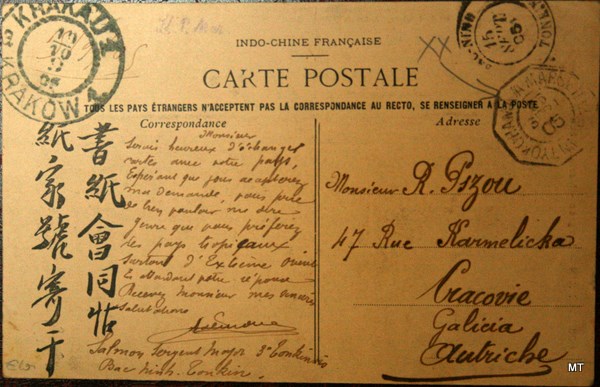 KRAKAU 2
KRAKÓW 2
INDO-CHINE FRANÇAISE
XX
BAC-NINH
15
AVRIL
05
TONKIN
CARTE POSTALE
TOUS LES PAYS ÉTRANGERS N'ACCEPTENT PAS LA CORRESPONDANCE AU RECTO, SE RENSEIGNER A LA POSTE
Correspondance
Monsieur
Serais heureux d'échanger
cartes avec votre pays,
Espérant que vous accepterez
ma demande, vous prie
de bien vouloir me dire
genre que vous préférez
les pays tropicaux
Surtout d'Extrême Orient
En attendant votre réponse
Recevez Monsieur mes
Salutations
Salmon Sergent Major 3e Tonkinois
Bac Ninh. Tonkin.
書紙會同
紙家號寄
Adresse
Monsieur R. Pszou
47 Rue Karmelicka
Cracovie
Galicia
Autriche
MT